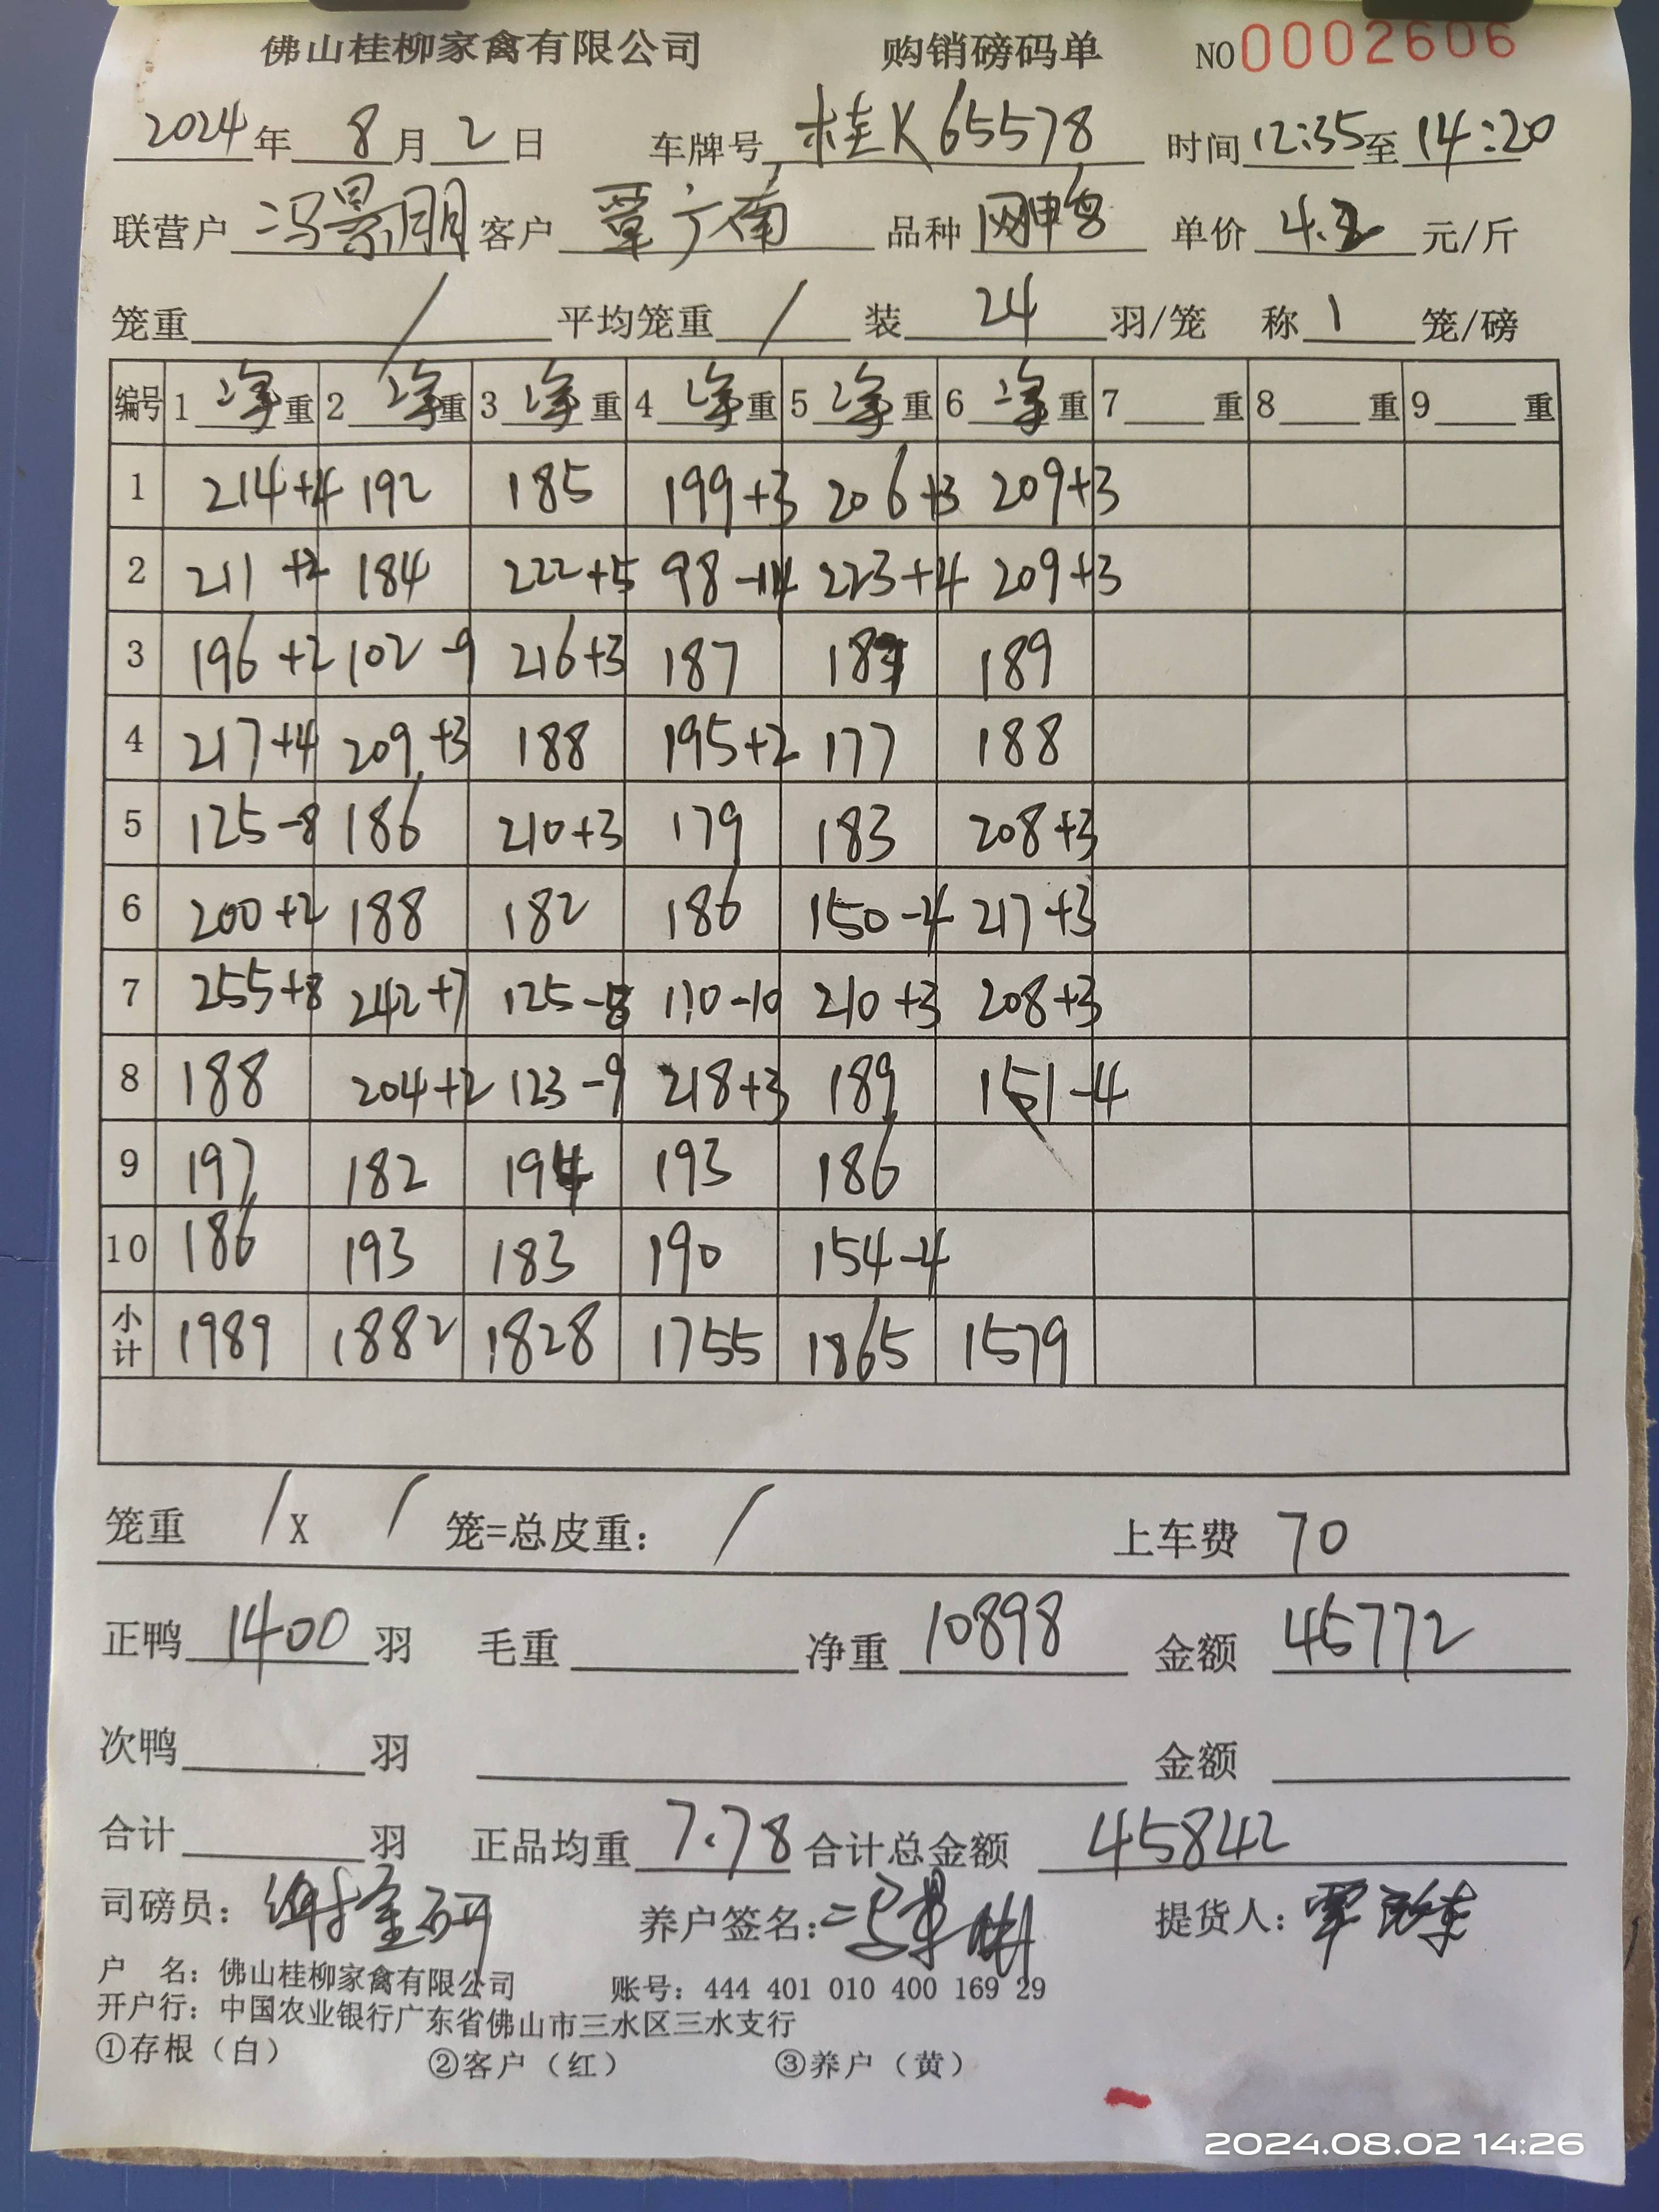 佛山桂柳家禽有限公司 购销磅码单 NO 0002606
2024年 8月 2日 车牌号 桂K65578 时间 12:35至 14:20
联营户 冯景朋 客户 覃广南 品种 单价 4.2 元/斤
笼重 / 平均笼重 / 装 24 羽/笼 称 1 笼/磅
编号 1 净重 2 净重 3 净重 4 净重 5 净重 6 净重 7 重 8 重 9 重
1 214+4 192 185 199+3 206+3 209+3
2 211+2 184 222+5 98-14 223+4 209+3
3 196+2 102-9 216+3 187 187 189
4 217+4 209+3 188 195+2 177 188
5 125-8 186 210+3 179 183 208+3
6 200+2 188 182 186 150-4 217+3
7 255+8 242+7 125-8 110-10 210+3 208+3
8 188 204+2 123-9 218+3 189 151-4
9 197 182 194 193 186
10 186 193 183 190 154-4
小计 1989 1882 1828 1755 1865 1579
笼重 / X / 笼=总皮重: / 上车费 70
正鸭 1400 羽 毛重 净重 10898 金额 45772
次鸭 羽 金额
合计 羽 正品均重 7.78 合计总金额 45842
司磅员: 养户签名: 提货人:
户 名: 佛山桂柳家禽有限公司 账号: 444 401 010 400 169 29
开户行: 中国农业银行广东省佛山市三水区三水支行
①存根（白） ②客户（红） ③养户（黄）
2024.08.02 14:26